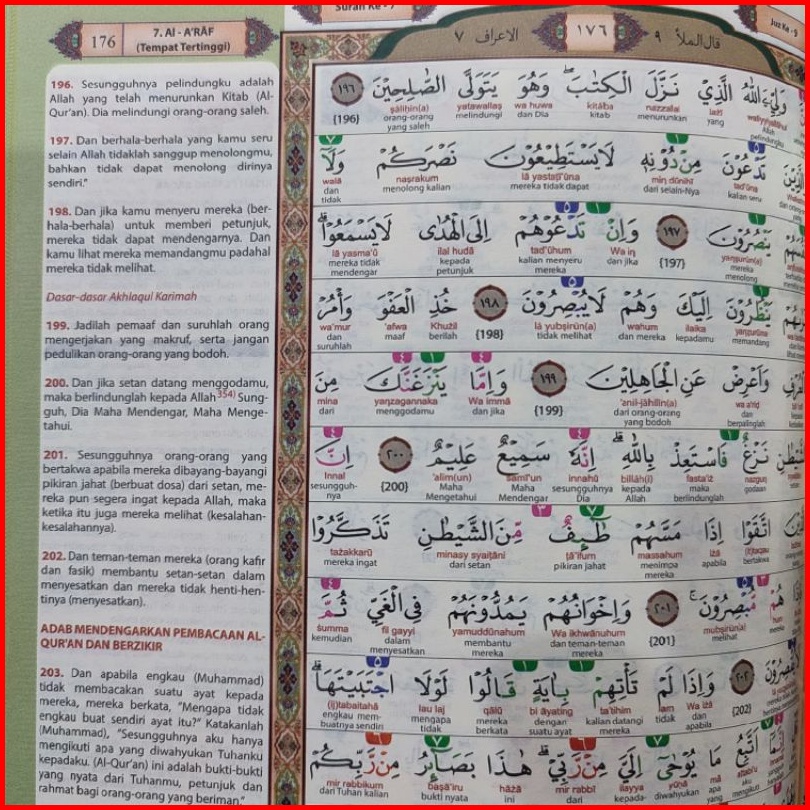 176
7. Al - A'RĀF
(Tempat Tertinggi)
196. Sesungguhnya pelindungku adalah
Allah yang telah menurunkan Kitab (Al-
Qur'an). Dia melindungi orang-orang saleh.
197. Dan berhala-berhala yang kamu seru
selain Allah tidaklah sanggup menolongmu,
bahkan tidak dapat menolong dirinya
sendiri."
198. Dan jika kamu menyeru mereka (ber-
hala-berhala) untuk memberi petunjuk,
mereka tidak dapat mendengarnya. Dan
kamu lihat mereka memandangmu padahal
mereka tidak melihat.
Dasar-dasar Akhlaqul Karimah
199. Jadilah pemaaf dan suruhlah orang
mengerjakan yang makruf, serta jangan
pedulikan orang-orang yang bodoh.
200. Dan jika setan datang menggodamu,
maka berlindunglah kepada Allah354) Sung-
guh, Dia Maha Mendengar, Maha Menge-
tahui.
201. Sesungguhnya orang-orang yang
bertakwa apabila mereka dibayang-bayangi
pikiran jahat (berbuat dosa) dari setan, me-
reka pun segera ingat kepada Allah, maka
ketika itu juga mereka melihat (kesalahan-
kesalahannya).
202. Dan teman-teman mereka (orang kafir
dan fasik) membantu setan-setan dalam
menyesatkan dan mereka tidak henti-hen-
tinya (menyesatkan).
ADAB MENDENGARKAN PEMBACAAN AL-
QUR'AN DAN BERZIKIR
203. Dan apabila engkau (Muhammad)
tidak membacakan suatu ayat kepada
mereka, mereka berkata, "Mengapa tidak
engkau buat sendiri ayat itu?" Katakanlah
(Muhammad), "Sesungguhnya aku hanya
mengikuti apa yang diwahyukan Tuhanku
kepadaku. (Al-Qur'an) ini adalah bukti-bukti
yang nyata dari Tuhanmu, petunjuk dan
rahmat bagi orang-orang yang beriman."
Surah Ke - 7
Juz Ke - 9
قال الملأ ٩ ١٧٦ الاعراف ٧
وَلِيِّ َۧ اللّٰهُ الَّذِيْ نَزَّلَ الْكِتٰبَۖ وَهُوَ يَتَوَلَّى الصّٰلِحِيْنَ ١٩٦
waliyyiyallāhul lażī nazzalal kitāba wa huwa yatawallaṣ ṣāliḥīn(a) {196}
Allah pelindungku yang menurunkan kitab dan Dia melindungi orang-orang yang saleh
تَدْعُوْنَ مِنْ دُوْنِهٖ لَا يَسْتَطِيْعُوْنَ نَصْرَكُمْ وَلَآ
tad'ūna min dūnihī lā yastaṭī'ūna naṣrakum walā
kalian seru dari selain-Nya mereka tidak dapat menolong kalian dan tidak
يَنْصُرُوْنَ ١٩٧ وَاِنْ تَدْعُوْهُمْ اِلَى الْهُدٰى لَا يَسْمَعُوْاۗ
yanṣurūn(a) {197} Wa in tad'ūhum ilal hudā lā yasma'ū
mereka menolong dan jika kalian menyeru mereka kepada petunjuk mereka tidak mendengar
يَنْظُرُوْنَ اِلَيْكَ وَهُمْ لَا يُبْصِرُوْنَ ١٩٨ خُذِ الْعَفْوَ وَأْمُرْ
yanẓurūna ilaika wahum lā yubṣirūn(a) {198} Khużil 'afwa wa'mur
memandang kepadamu dan mereka tidak melihat berilah maaf dan suruhlah
وَاَعْرِضْ عَنِ الْجَاهِلِيْنَ ١٩٩ وَاِمَّا يَنْزَغَنَّكَ مِنَ
wa a'riḍ 'anil-jāhilīn(a) {199} Wa immā yanzagannaka mina
dan berpalinglah dari orang-orang yang bodoh dan jika menggodamu dari
نَزْغٌ فَاسْتَعِذْ بِاللّٰهِۗ اِنَّهٗ سَمِيْعٌ عَلِيْمٌ ٢٠٠ اِنَّ
nazgun fasta'iż billāh(i) innahū samī'un 'alīm(un) {200} Innal
godaan maka berlindunglah kepada Allah sesungguhnya Dia Maha Mendengar Maha Mengetahui sesungguh-nya
اتَّقَوْا اِذَا مَسَّهُمْ طٰۤىِٕفٌ مِّنَ الشَّيْطٰنِ تَذَكَّرُوْا
(i)ttaqau iżā massahum ṭā'ifum minasy syaiṭāni tażakkarū
bertakwa apabila menimpa mereka pikiran jahat dari setan mereka ingat
هُمْ مُّبْصِرُوْنَۚ ٢٠١ وَاِخْوَانُهُمْ يَمُدُّوْنَهُمْ فِى الْغَيِّ ثُمَّ
hum mubṣirūn(a) {201} Wa ikhwānuhum yamuddūnahum fil gayyi ṡumma
mereka melihat dan teman-teman mereka membantu mereka dalam menyesatkan kemudian
وَاِذَا لَمْ تَأْتِهِمْ بِاٰيَةٍ قَالُوْا لَوْلَا اجْتَبَيْتَهَاۗ
{202} Wa iżā lam ta'tihim bi āyating qālū lau laj (i)jtabaitahā
dan apabila tidak kalian datangi mereka dengan suatu ayat mereka berkata mengapa tidak engkau mem-buatnya sendiri
اَتَّبِعُ مَا يُوْحٰٓى اِلَيَّ مِنْ رَّبِّيْۗ هٰذَا بَصَاۤىِٕرُ مِنْ رَّبِّكُمْ
attabi'u mā yūḥā ilayya mir rabbī hāżā baṣā'iru mir rabbikum
aku mengikuti apa yang diwahyukan kepada-ku dari Tuhanku ini bukti nyata dari Tuhan kalian